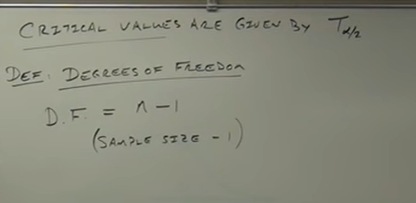 CRITICAL VALUES ARE GIVEN BY Tα/2
DEF: DEGREES OF FREEDOM
D.F. = n - 1
(SAMPLE SIZE - 1)